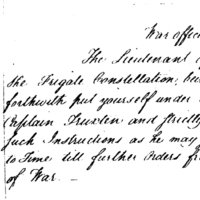 War office
The Lieutenant o
the Frigate Constellation, bei
forthwith put yourself under
Captain Truxton and strictly
such Instructions as he may
to Time till further Orders fr
of War. —